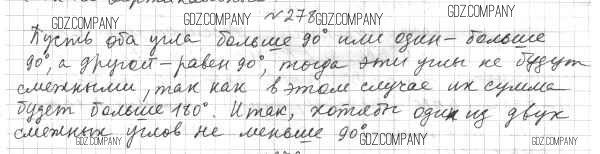 №278
Пусть оба угла больше 90° или один – больше
90°, а другой – равен 90°, тогда эти углы не будут
смежными, так как в этом случае их сумма
будет больше 180°. Итак, хотябы один из двух
смежных углов не меньше 90°
GDZ.COMPANY
GDZ.COMPANY
GDZ.COMPANY
GDZ.COMPANY
GDZ.COMPANY
GDZ.COMPANY
GDZ.COMPANY